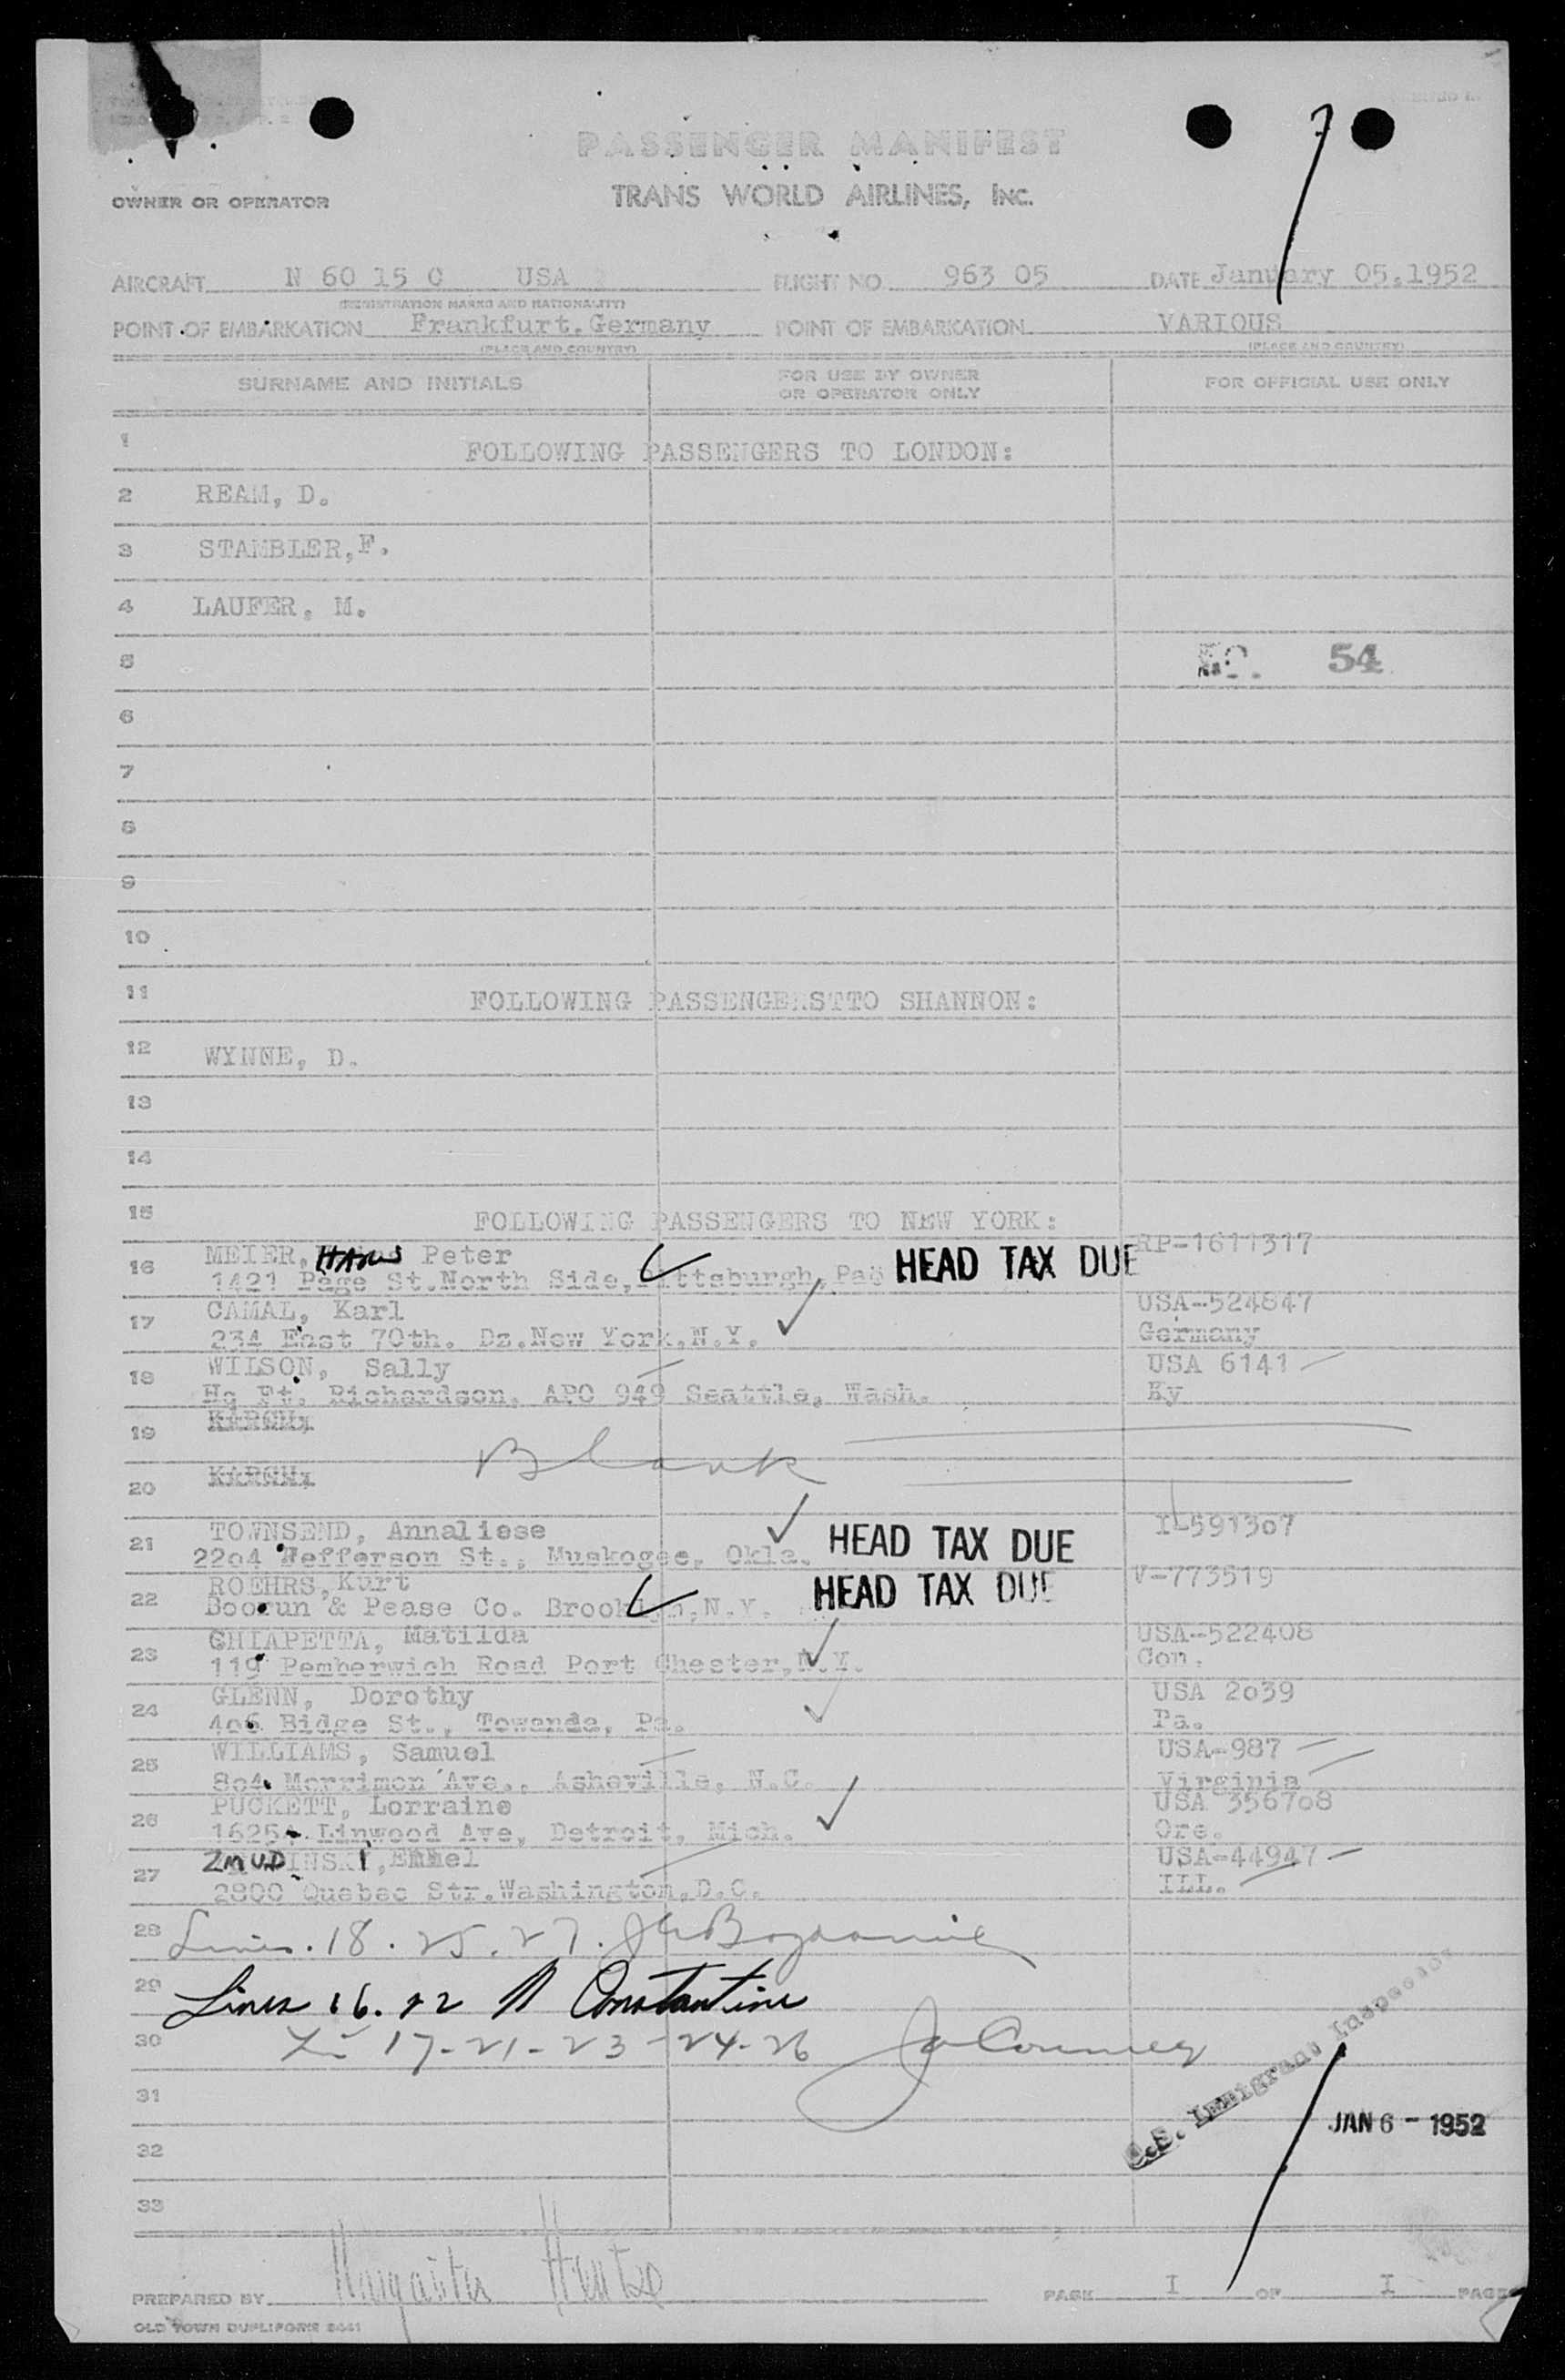 7
PASSENGER MANIFEST
OWNER OR OPERATOR
TRANS WORLD AIRLINES, Inc.
AIRCRAFT N 60 15 C USA FLIGHT NO. 963 05 DATE January 05.1952
(REGISTRATION MARKS AND NATIONALITY)
POINT OF EMBARKATION Frankfurt.Germany POINT OF EMBARKATION VARIOUS
(PLACE AND COUNTRY) (PLACE AND COUNTRY)
SURNAME AND INITIALS FOR USE BY OWNER OR OPERATOR ONLY FOR OFFICIAL USE ONLY
1 FOLLOWING PASSENGERS TO LONDON:
2 REAM, D.
3 STAMBLER, F.
4 LAUFER, M.
5 54
6
7
8
9
10
11 FOLLOWING PASSENGERSTTO SHANNON:
12 WYNNE, D.
13
14
15 FOLLOWING PASSENGERS TO NEW YORK:
16 MEIER, HANS Peter HEAD TAX DUE RP-1611317
1421 Page St.North Side, Pittsburgh, Pa
17 CAMAL, Karl USA-524847
234 East 70th. Dz.New York.N.Y. Germany
18 WILSON, Sally USA 6141
Hq Ft. Richardson, APO 949 Seattle, Wash. Ky
19 KARCH,
Blank
20 KARCH,
21 TOWNSEND, Annaliese HEAD TAX DUE I-591307
2204 Jefferson St., Muskogee, Okla.
22 ROEHRS, Kurt HEAD TAX DUE V-773519
Boorun & Pease Co. Brooklyn, N.Y.
23 CHIAPETTA, Matilda USA-522408
119 Pemberwich Road Port Chester, N.Y. Con.
24 GLENN, Dorothy USA 2039
406 Ridge St., Towanda, Pa. Pa.
25 WILLIAMS, Samuel USA-987
804 Merrimon Ave., Asheville, N.C. Virginia
26 PUCKETT, Lorraine USA 356708
16254 Linwood Ave, Detroit, Mich. Ore.
27 ZMUDINSKI, Emmel USA-44947
2800 Quebec Str.Washington, D.C. ILL.
28 Lines. 18. 25. 27.
29 Lines 16. 22 Constantine
30 17-21-23-24-26
31
U.S. Immigrant Inspector
JAN 6 - 1952
32
33
PREPARED BY Margarita Hentze PAGE I OF I PAGES
OLD TOWN DUPLIFORM 8441